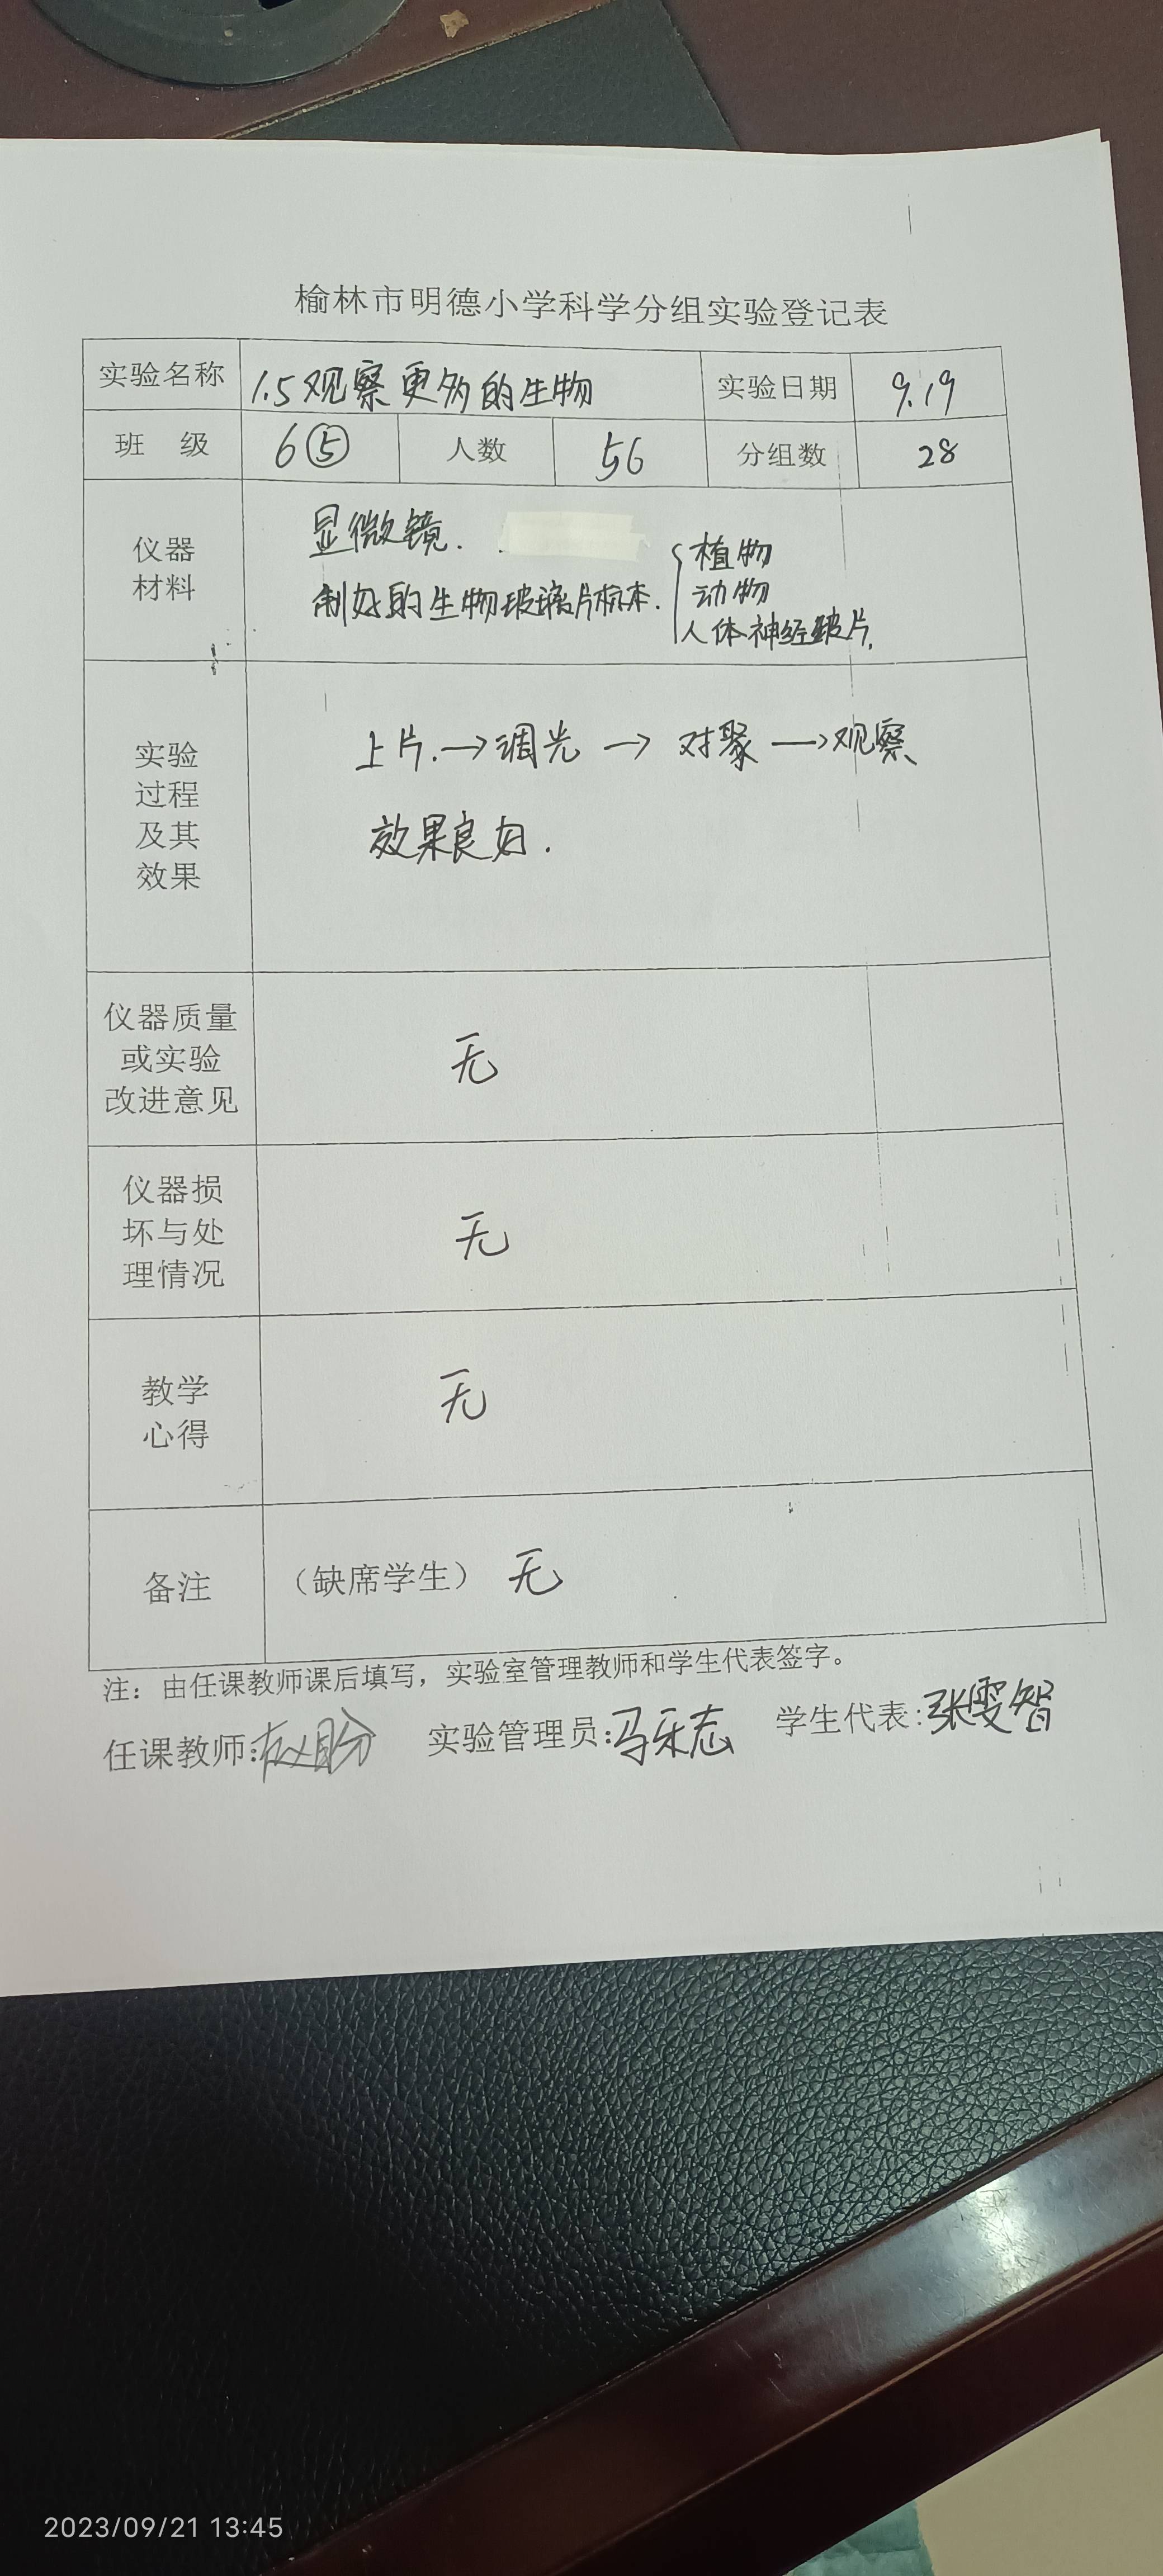 榆林市明德小学科学分组实验登记表
实验名称 1.5观察更多的生物 实验日期 9.19
班 级 6⑤ 人数 56 分组数 28
仪器
材料
显微镜.
制好的生物玻璃片标本.
植物
动物
人体神经玻片.
实验
过程
及其
效果
上片.→调光→对聚→观察
效果良好.
仪器质量
或实验
改进意见
无
仪器损
坏与处
理情况
无
教学
心得
无
备注
（缺席学生） 无
注：由任课教师课后填写，实验室管理教师和学生代表签字。
任课教师: 实验管理员:冯乐志 学生代表:张雯智
2023/09/21 13:45